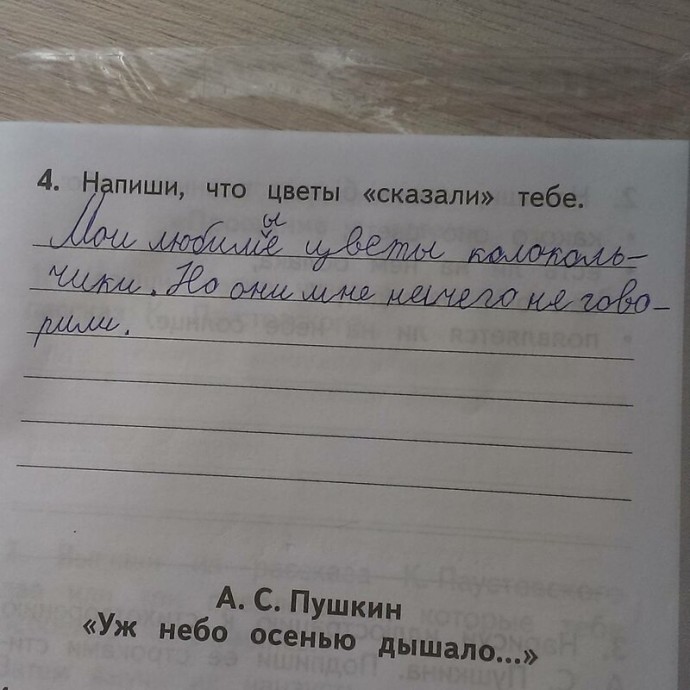 4. Напиши, что цветы «сказали» тебе.
Мои любимые цветы колоколь-
чики. Но они мне ничего не гово-
рили.
А. С. Пушкин
«Уж небо осенью дышало...»